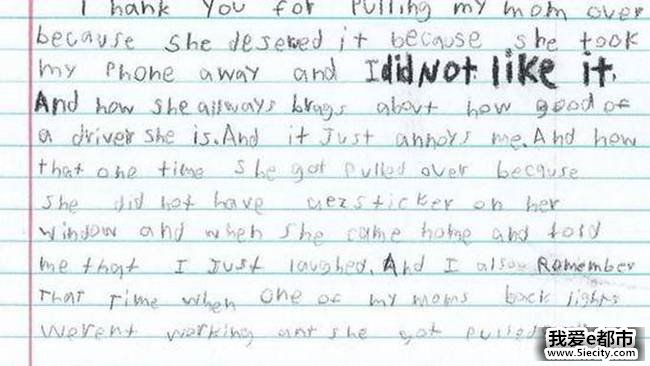 Thank you for pulling my mom over
because she deserved it because she took
my phone away and I did Not like it.
And how she allways brags about how good of
a driver she is. And it Just annoys me. And how
that one time she got pulled over because
she did not have her sticker on her
window and when she came home and told
me that I Just laughed. And I also Remember
That Time when one of my moms back lights
werent working ant she got pulled
我爱e都市
www.5iecity.com